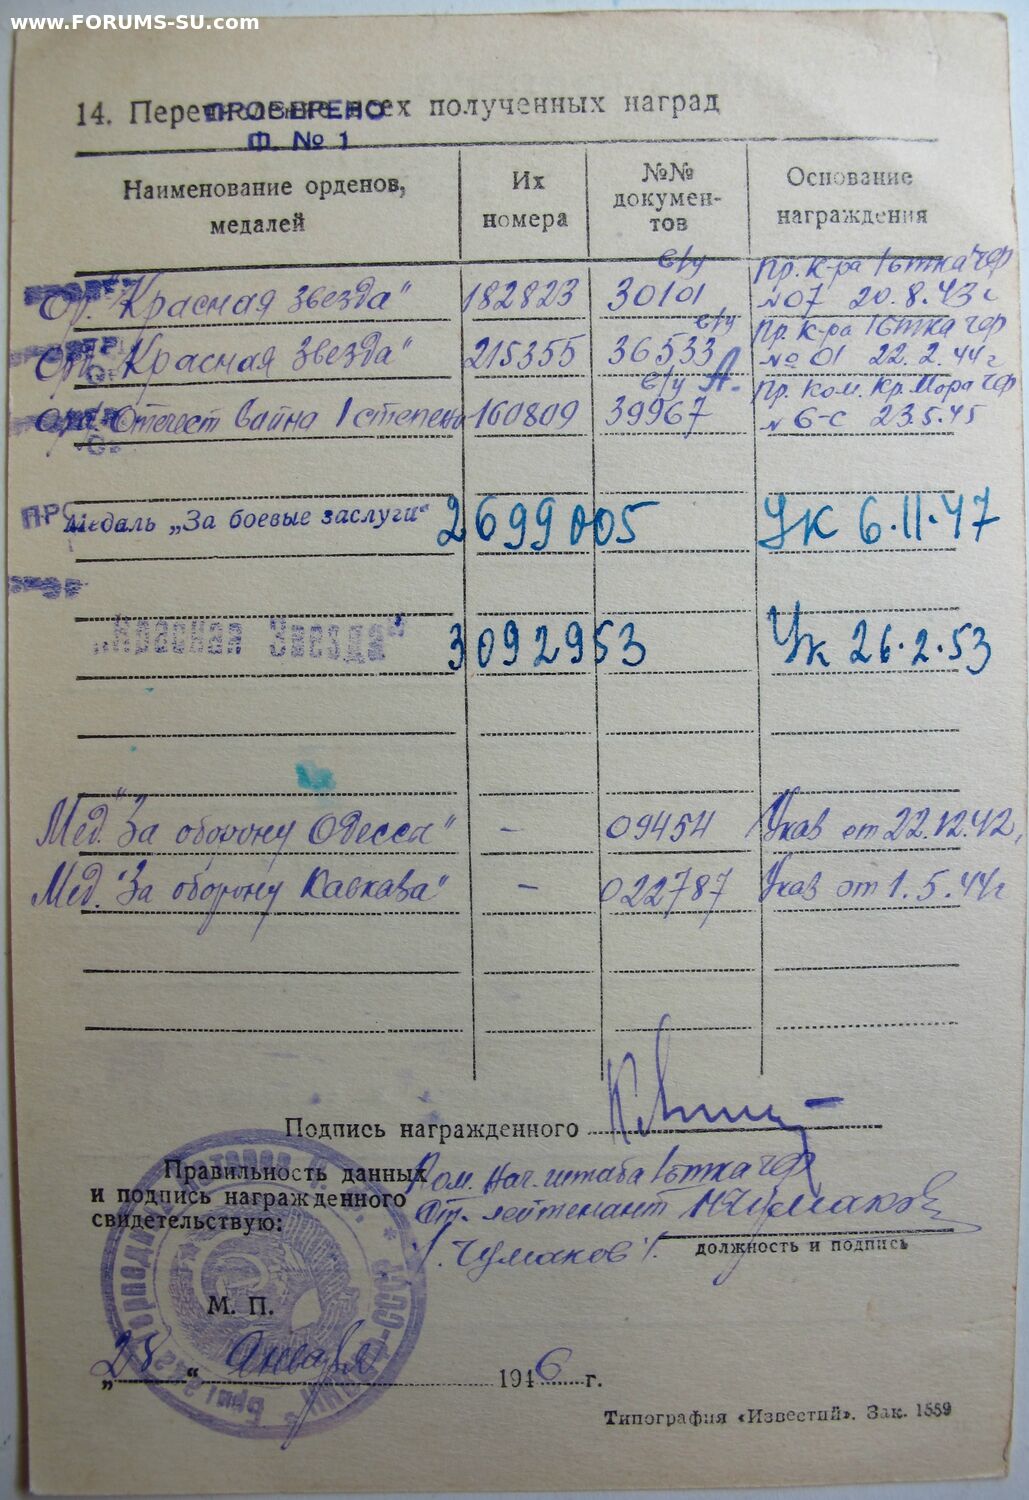 www.FORUMS-SU.com
14. Перечисление всех полученных наград
ПРОВЕРЕНО
Ф. № 1
Наименование орденов, медалей
Их номера
№№ докумен-тов
Основание награждения
Ор. "Красная звезда" 182823 с/у 30101 Пр. К-ра 1 бтка ЧФ №07 20.8.43 г
Орд. "Красная звезда" 215355 с/у 36533 Пр. К-ра 1 бтка ЧФ № 01 22.2.44 г
Орд. Отечест война 1 степени 160809 с/у А. 39967 Пр. Ком. Кр. Мора ЧФ № 6-с 23.5.45
ПРО
Медаль „За боевые заслуги" 2699005 УК 6.11.47
„Красная Звезда" 3092953 Ук 26.2.53
Мед. "За оборону Одессы" - 09454 Указ от 22.12.42 г
Мед. "За оборону Кавказа" - 022787 Указ от 1.5.44 г
Подпись награжденного
Правильность данных
и подпись награжденного
свидетельствую:
Пом. Нач. штаба 1 бтка ЧФ
Ст. лейтенант НЧумаков
/Чумаков/.
должность и подпись
М. П.
„28“ Января 1946 г.
Типография «Известий». Зак. 1559